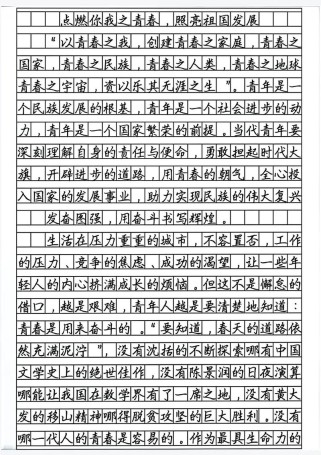 点燃你我之青春，照亮祖国发展
“以青春之我，创建青春之家庭，青春之
国家，青春之民族，青春之人类，青春之地球
青春之宇宙，资以乐其无涯之生”。青年是一
个民族发展的根基，青年是一个社会进步的动
力，青年是一个国家繁荣的前提。当代青年要
深刻理解自身的责任与使命，勇敢担起时代大
旗，开辟进步的道路，用青春的朝气，全心投
入国家的发展事业，助力实现民族的伟大复兴
发奋图强，用奋斗书写辉煌。
生活在压力重重的城市，不容置否，工作
的压力、竞争的焦虑、成功的渴望，让一些年
轻人的内心挤满成长的烦恼。但这不是懈怠的
借口，越是艰难，青年人越是要清楚地知道：
青春是用来奋斗的。“要知道，春天的道路依
然充满泥泞”，没有沈括的不断探索哪有中国
文学史上的绝世佳作，没有陈景润的日夜演算
哪能让我国在数学界有了一席之地，没有黄大
发的移山精神哪得脱贫攻坚的巨大胜利。没有
哪一代人的青春是容易的。作为最具生命力的